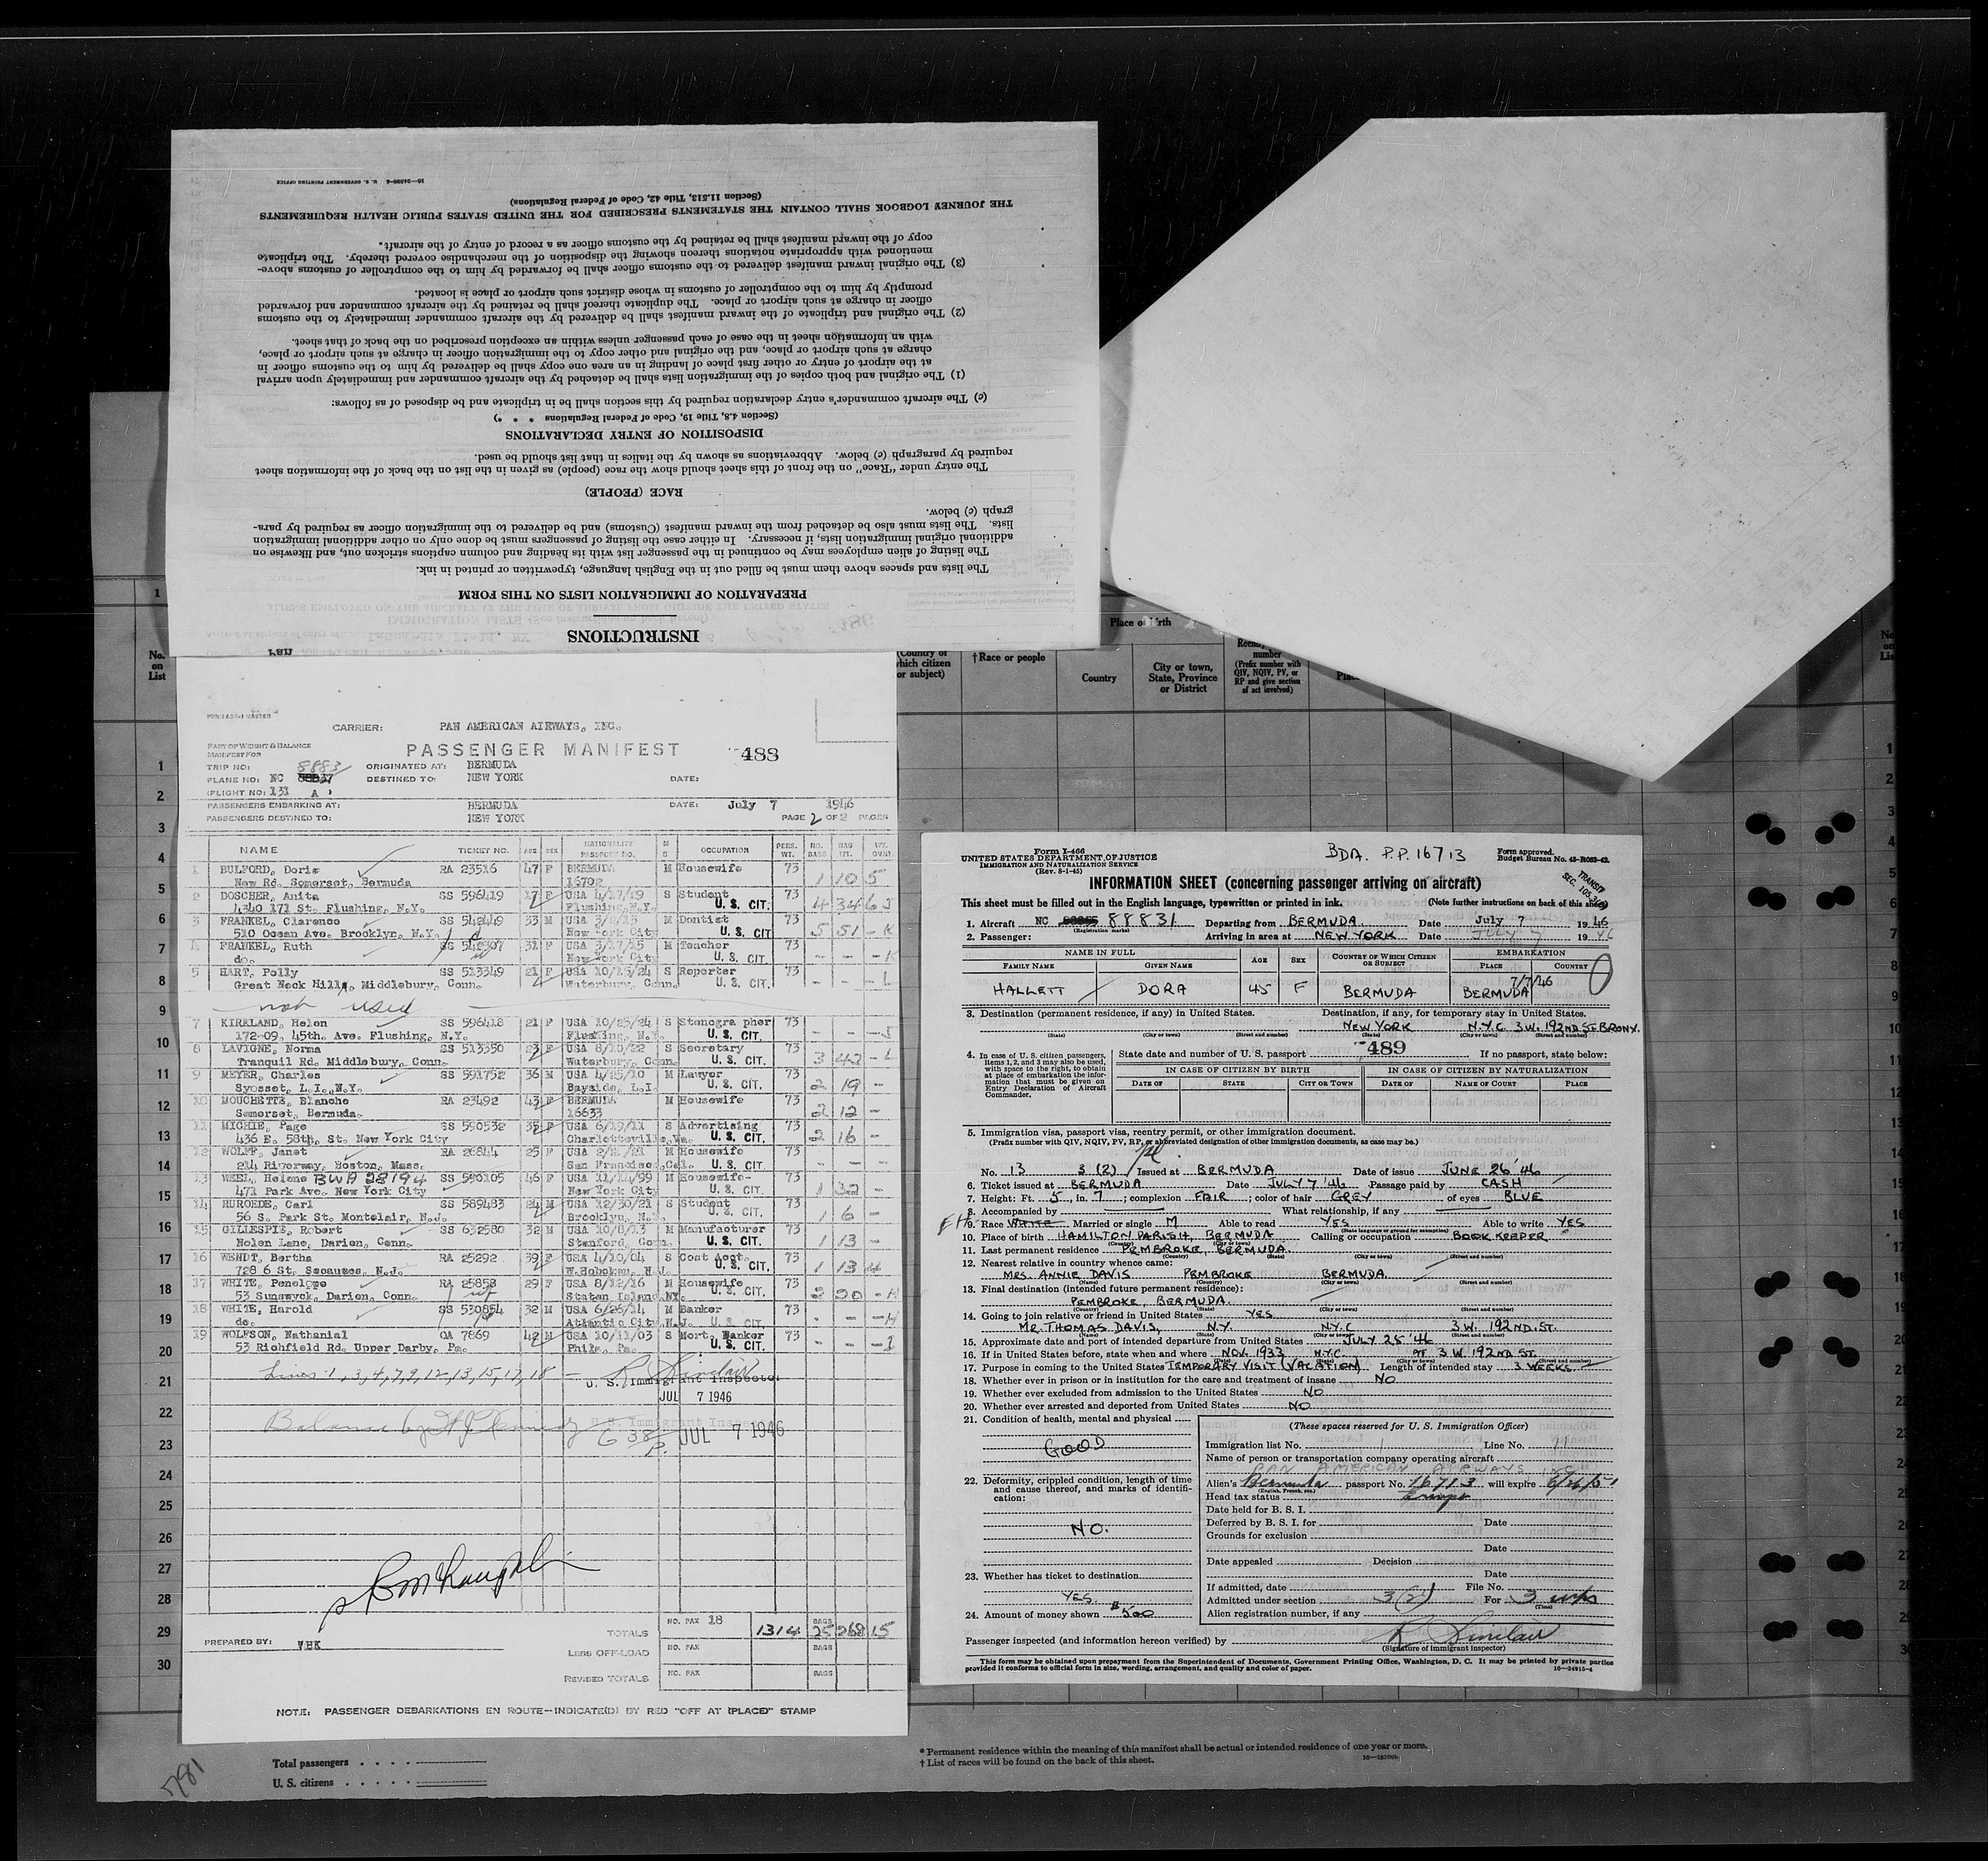 INSTRUCTIONS
PREPARATION OF IMMIGRATION LISTS ON THIS FORM
The lists and spaces above them must be filled out in the English language, typewritten or printed in ink.
The listing of alien employees may be continued in the passenger list with its heading and column captions stricken out, and likewise on
additional original immigration lists, if necessary. In either case the listing of passengers must be done only on other additional immigration
lists. The lists must also be detached from the inward manifest (Customs) and be delivered to the immigration officer as required by para-
graph (c) below.
RACE (PEOPLE)
The entry under "Race" on the front of this sheet should show the race (people) as given in the list on the back of the information sheet
required by paragraph (c) below. Abbreviations as shown by the italics in that list should be used.
DISPOSITION OF ENTRY DECLARATIONS
(Section 4.8, Title 19, Code of Federal Regulations * * *)
(c) The aircraft commander's entry declaration required by this section shall be in triplicate and be disposed of as follows:
(1) The original and both copies of the immigration lists shall be detached by the aircraft commander and immediately upon arrival
at the airport of entry or other first place of landing in an area one copy shall be delivered by him to the customs officer in
charge at such airport or place, and the original and other copy to the immigration officer in charge at such airport or place,
with an information sheet in the case of each passenger unless within an exception prescribed on the back of that sheet.
(2) The original and triplicate of the inward manifest shall be delivered by the aircraft commander immediately to the customs
officer in charge at such airport or place. The duplicate thereof shall be retained by the aircraft commander and forwarded
promptly by him to the comptroller of customs in whose district such airport or place is located.
(3) The original inward manifest delivered to the customs officer shall be forwarded by him to the comptroller of customs above-
mentioned with appropriate notations thereon showing the disposition of the merchandise covered thereby. The triplicate
copy of the inward manifest shall be retained by the customs officer as a record of entry of the aircraft.
THE JOURNEY LOGBOOK SHALL CONTAIN THE STATEMENTS PRESCRIBED FOR THE UNITED STATES PUBLIC HEALTH REQUIREMENTS
(Section 11.513, Title 42, Code of Federal Regulations)
U. S. GOVERNMENT PRINTING OFFICE
No. on List
(Country of which citizen or subject)
†Race or people
Place of birth
Country
City or town, State, Province or District
number (Prefix number with QIV, NQIV, PV, or RP and give section of act involved)
CARRIER: PAN AMERICAN AIRWAYS, INC.
PART OF WEIGHT & BALANCE
MANIFEST FOR
PASSENGER MANIFEST 488
TRIP NO: 8883 ORIGINATED AT: BERMUDA
PLANE NO: NC DESTINED TO: NEW YORK DATE:
(FLIGHT NO: 131 A )
PASSENGERS EMBARKING AT: BERMUDA DATE: July 7 1946
PASSENGERS DESTINED TO: NEW YORK PAGE 2 OF 2 PAGES
NAME TICKET NO. AGE SEX NATIONALITY PASSPORT NO. M S OCCUPATION PERS. WT. NO. BAGS BAG WT. WT. OVWT.
1 BULFORD, Doris RA 23516 47 F BERMUDA M Housewife 73
New Rd. Somerset, Bermuda 16702 1 10 5
2 DOSCHER, Anita SS 596419 17 F USA 4/27/29 S Student 73
4340 171 St. Flushing, N.Y. Flushing, N.Y. U. S. CIT. 4 34 6 J
3 FRANKEL, Clarence SS 542449 33 M M Dentist 73
510 Ocean Ave. Brooklyn, N.Y. New York City U. S. CIT 5 51 - K
4 FRANKEL, Ruth SS 542307 31 F USA 3/17/15 M Teacher 73
do. New York City U. S. CIT. - - - K
5 HART, Polly SS 513349 21 F USA 10/15/24 S Reporter 73
Great Neck Hills, Middlebury, Conn. Waterbury, Conn. U. S. CIT. - - - L
not used
7 KIRKLAND, Helen SS 596418 21 F USA 10/25/24 S Stenographer 73
172-09, 45th. Ave. Flushing, N.Y. Flushing, N.Y. - - - J
8 LAVIGNE, Norma SS 513350 23 F USA 8/10/22 S Secretary 73
Tranquil Rd. Middlebury, Conn. Waterbury, Conn. U. S. CIT. 3 42 - L
9 MEYER, Charles SS 591752 36 M USA 4/25/10 M Lawyer 73
Syosset, L.I., N.Y. Bayside, L.I. U. S. CIT. 2 19 -
10 MOUCHETTE, Blanche RA 23492 43 F BERMUDA M Housewife 73
Somerset, Bermuda. 16633 2 12 -
11 MICHIE, Page SS 590532 35 F USA 6/19/11 S Advertising 73
436 E. 58th. St. New York City Charlottesville, Va. U. S. CIT. 2 16 -
12 WOLFF, Janet RA 26844 25 F USA 2/21/21 M Housewife 73
214 Riverway, Boston, Mass. San Francisco, Cal. U. S. CIT. - - -
13 WEEL, Helene BWA 28194 SS 590105 46 F USA 11/14/99 M Housewife- 73
471 Park Ave. New York City New York City U. S. CIT. 1 32 -
14 RUROEDE, Carl SS 589483 24 M USA 12/30/21 S Student 73
56 S. Park St. Montclair, N.J. Brooklyn, N.Y. U. S. CIT. 1 6 -
15 GILLESPIE, Robert SS 632580 32 M USA 10/8/13 M Manufacturer 73
Nolen Lane, Darien, Conn. Stamford, Conn. U. S. CIT. 1 13 -
16 WENDT, Bertha RA 25292 39 F USA 4/10/04 S Cost Acct. 73
728 6 St. Secaucus, N.J. W.Hoboken, N.J. U. S. CIT. 1 13 4
17 WHITE, Penelope RA 25858 29 F USA 8/12/16 M Housewife 73
53 Sunswyck, Darien, Conn. Staten Island, NY. U. S. CIT. 2 20 - H
18 WHITE, Harold SS 530854 32 M USA 6/25/14 M Banker 73
do. Atlantic City, N.J. U. S. CIT - - - H
19 WOLFSON, Nathanial OA 7869 42 M USA 10/11/03 S Mort. Banker 73
53 Richfield Rd. Upper Darby, Pa. Phila, Pa. U. S. CIT. - - - I
Lines 1, 3, 4, 7, 9, 12, 13, 15, 17, 18 - R Sinclair
U. S. Immigrant Inspector
JUL 7 1946
Balance by
U. S. Immigrant Inspector
JUL 7 1946
NO. PAX 18 BAGS
TOTALS 1314 25 268 15
PREPARED BY: VHK
NO. PAX BAGS
LESS OFF-LOAD
NO. PAX BAGS
REVISED TOTALS
NOTE: PASSENGER DEBARKATIONS EN ROUTE--INDICATE(D) BY RED "OFF AT (PLACE)" STAMP
Total passengers . . . .
U. S. citizens . . . . .
781
Form I-466
UNITED STATES DEPARTMENT OF JUSTICE
IMMIGRATION AND NATURALIZATION SERVICE
(Rev. 8-1-45)
BDA. P.P. 16713
Form approved.
Budget Bureau No. 43-R063-42.
TRANSIT
INFORMATION SHEET (concerning passenger arriving on aircraft)
This sheet must be filled out in the English language, typewritten or printed in ink. (Note further instructions on back of this sheet)
1. Aircraft NC 88831 Departing from BERMUDA. Date July 7 1946
2. Passenger: Arriving in area at NEW YORK Date JULY 7 1946
NAME IN FULL AGE SEX COUNTRY OF WHICH CITIZEN OR SUBJECT EMBARKATION
FAMILY NAME GIVEN NAME PLACE COUNTRY
7/7/46
HALLETT DORA 45 F BERMUDA BERMUDA
3. Destination (permanent residence, if any) in United States. Destination, if any, for temporary stay in United States.
NEW YORK N.Y.C. 3 W. 192ND ST BRONX.
(State) (City or town) (Street and number) (State) (City or town) (Street and number)
489
4. In case of U. S. citizen passengers, items 1, 2, and 3 may also be used, with space to the right, to obtain at place of embarkation the information that must be given on Entry Declaration of Aircraft Commander.
State date and number of U. S. passport If no passport, state below:
IN CASE OF CITIZEN BY BIRTH IN CASE OF CITIZEN BY NATURALIZATION
DATE OF STATE CITY OR TOWN DATE OF NAME OF COURT PLACE
5. Immigration visa, passport visa, reentry permit, or other immigration document.
(Prefix number with QIV, NQIV, PV, RP, or abbreviated designation of other immigration documents, as case may be.)
No. 13 3 (2) Issued at BERMUDA Date of issue JUNE 26 '46
6. Ticket issued at BERMUDA Date JULY 7 '46 Passage paid by CASH
7. Height: Ft. 5, in. 7; complexion FAIR; color of hair GREY of eyes BLUE
8. Accompanied by What relationship, if any
9. Race WHITE Married or single M Able to read YES Able to write YES
(State language or ground for exemption)
10. Place of birth HAMILTON PARISH, BERMUDA Calling or occupation BOOK KEEPER
11. Last permanent residence PEMBROKE, BERMUDA.
(Country) (State) (City or town) (Street and number)
12. Nearest relative in country whence came:
MRS. ANNIE DAVIS PEMBROKE BERMUDA.
(Name) (Country) (City or town) (Street and number)
13. Final destination (intended future permanent residence):
PEMBROKE, BERMUDA.
(Country) (State) (City or town) (Street and number)
14. Going to join relative or friend in United States YES.
MR. THOMAS DAVIS, N.Y. N.Y.C 3 W. 192ND. ST.
(Name) (State) (City or town) (Street and number)
15. Approximate date and port of intended departure from United States JULY 25 '46
16. If in United States before, state when and where NOV. 1933 N.Y.C. AT 3 W. 192ND ST.
17. Purpose in coming to the United States TEMPORARY VISIT (VACATION) Length of intended stay 3 WEEKS
18. Whether ever in prison or in institution for the care and treatment of insane NO
19. Whether ever excluded from admission to the United States NO
20. Whether ever arrested and deported from United States NO
21. Condition of health, mental and physical
GOOD
22. Deformity, crippled condition, length of time and cause thereof, and marks of identification:
NO.
23. Whether has ticket to destination
YES.
24. Amount of money shown $500
(These spaces reserved for U. S. Immigration Officer)
Immigration list No. 1 Line No. 11
Name of person or transportation company operating aircraft
PAN AMERICAN AIRWAYS
Alien's Bermuda passport No. 16713 will expire 6/26/51
(English, French, etc.)
Head tax status
Date held for B. S. I.
Deferred by B. S. I. for Date
Grounds for exclusion
Date
Date appealed Decision
Date
If admitted, date 3(2) File No.
Admitted under section For 3 wks
(Time)
Alien registration number, if any
Passenger inspected (and information hereon verified) by R Sinclair
(Signature of immigrant inspector)
This form may be obtained upon prepayment from the Superintendent of Documents, Government Printing Office, Washington, D. C. It may be printed by private parties
provided it conforms to official form in size, wording, arrangement, and quality and color of paper. 16-24915-4
* Permanent residence within the meaning of this manifest shall be actual or intended residence of one year or more.
† List of races will be found on the back of this sheet.